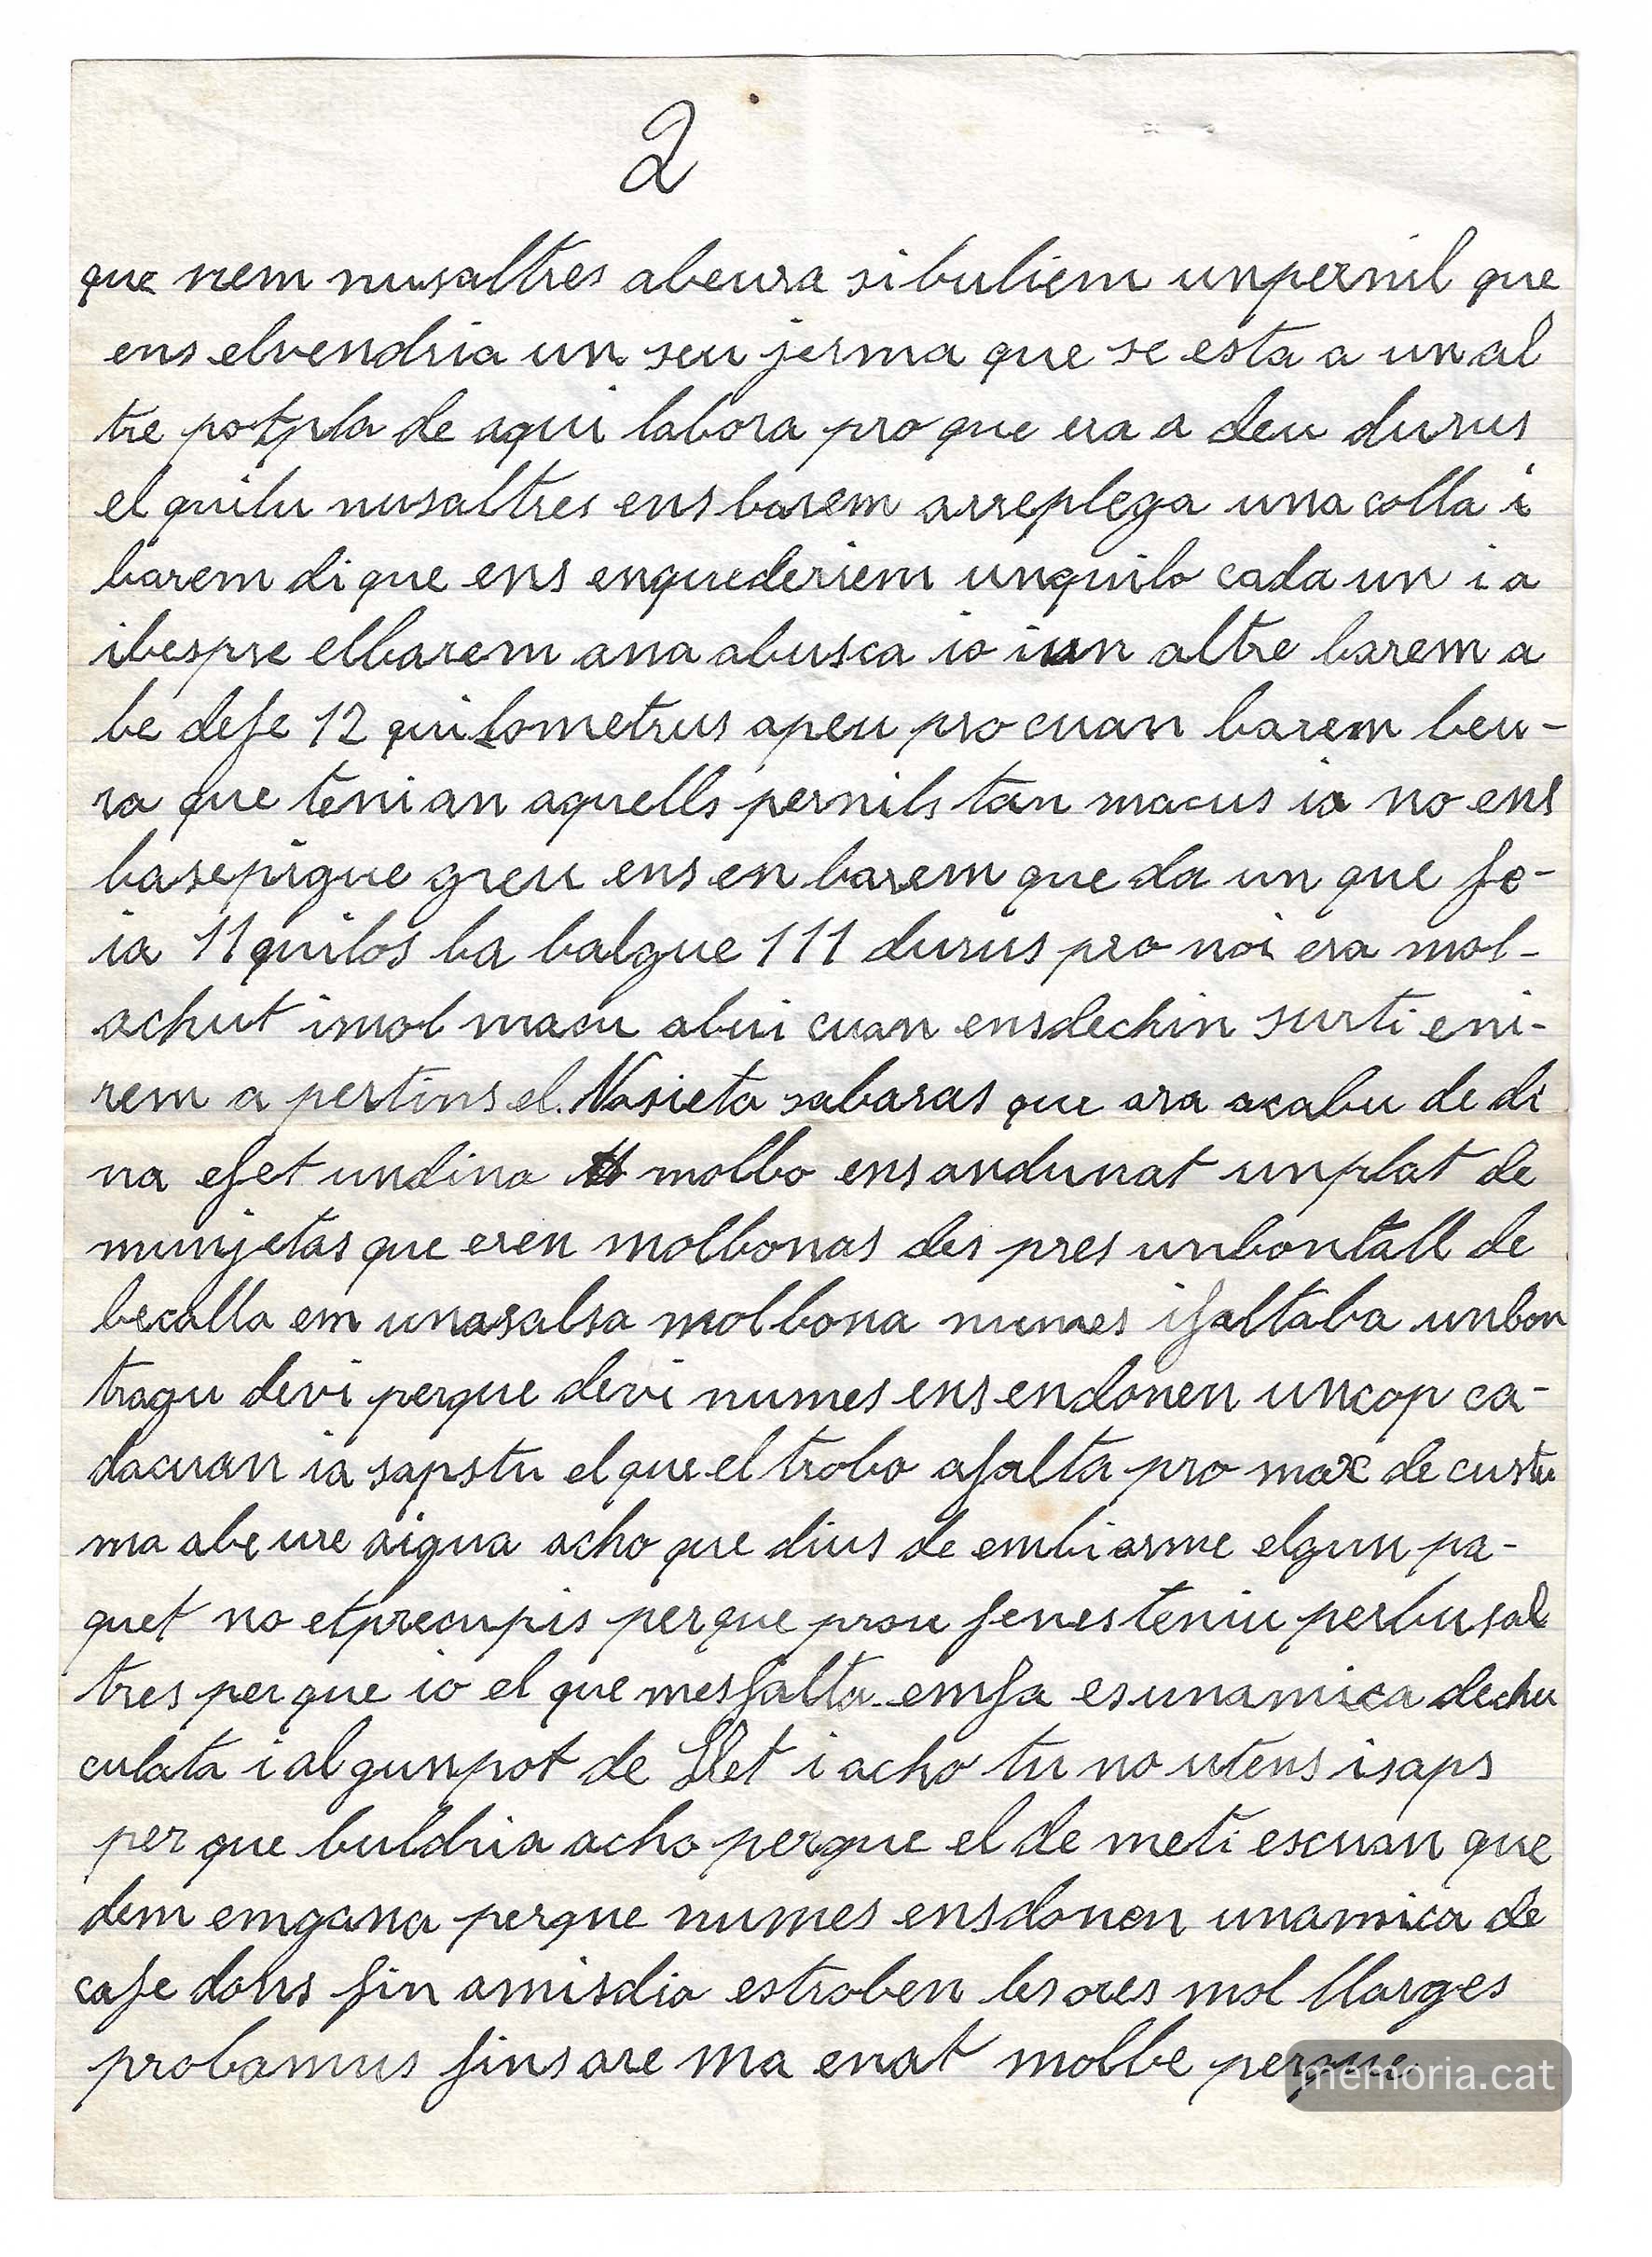 2
que nem nusaltres abeura si buliem unpernil que
ens elvendria un seu jerma que se esta a un al
tre potpla de aqui labora pro que era a deu durus
el quilu nusaltres ens barem arreplega una colla i
barem di que ens enquederiem unquilo cada un i a
ibespre elbarem ana abusca io iun altre barem a
be defe 12 quilometrus apeu pro cuan barem beu-
ra que tenian aquells pernils tan macus ia no ens
basepigue greu ens en barem que da un que fe-
ia 11 quilos ba balgue 111 durus pro noi era mol-
achut imol macu abui cuan ensdechin surti eni-
rem a pertinsel. Nasieta sabaras que ara acabu de di
na efet undina molbo ens andunat unplat de
munjetas que eren molbonas des pres unbontall de
becalla em unasalsa molbona numes ifaltaba unbon
tragu devi perque devi numes ens endonen uncop ca-
dacuan ia sapstu el que el trobo afalta pro max de custu
ma abeure aigua acho que dius de embiarme elgun pa-
quet no etprecupis perque prou fenesteniu perbusal
tres perque io el que mesfalta emfa es unamica dechu
culata i algunpot de Llet i acho tu no utens isaps
per que buldria acho perque el de meti escuan que
dem emgana perque numes ensdonen unamica de
cafe dons fin amisdia estroben lesores mol llarges
probamus finsare ma enat molbe perque
memoria.cat